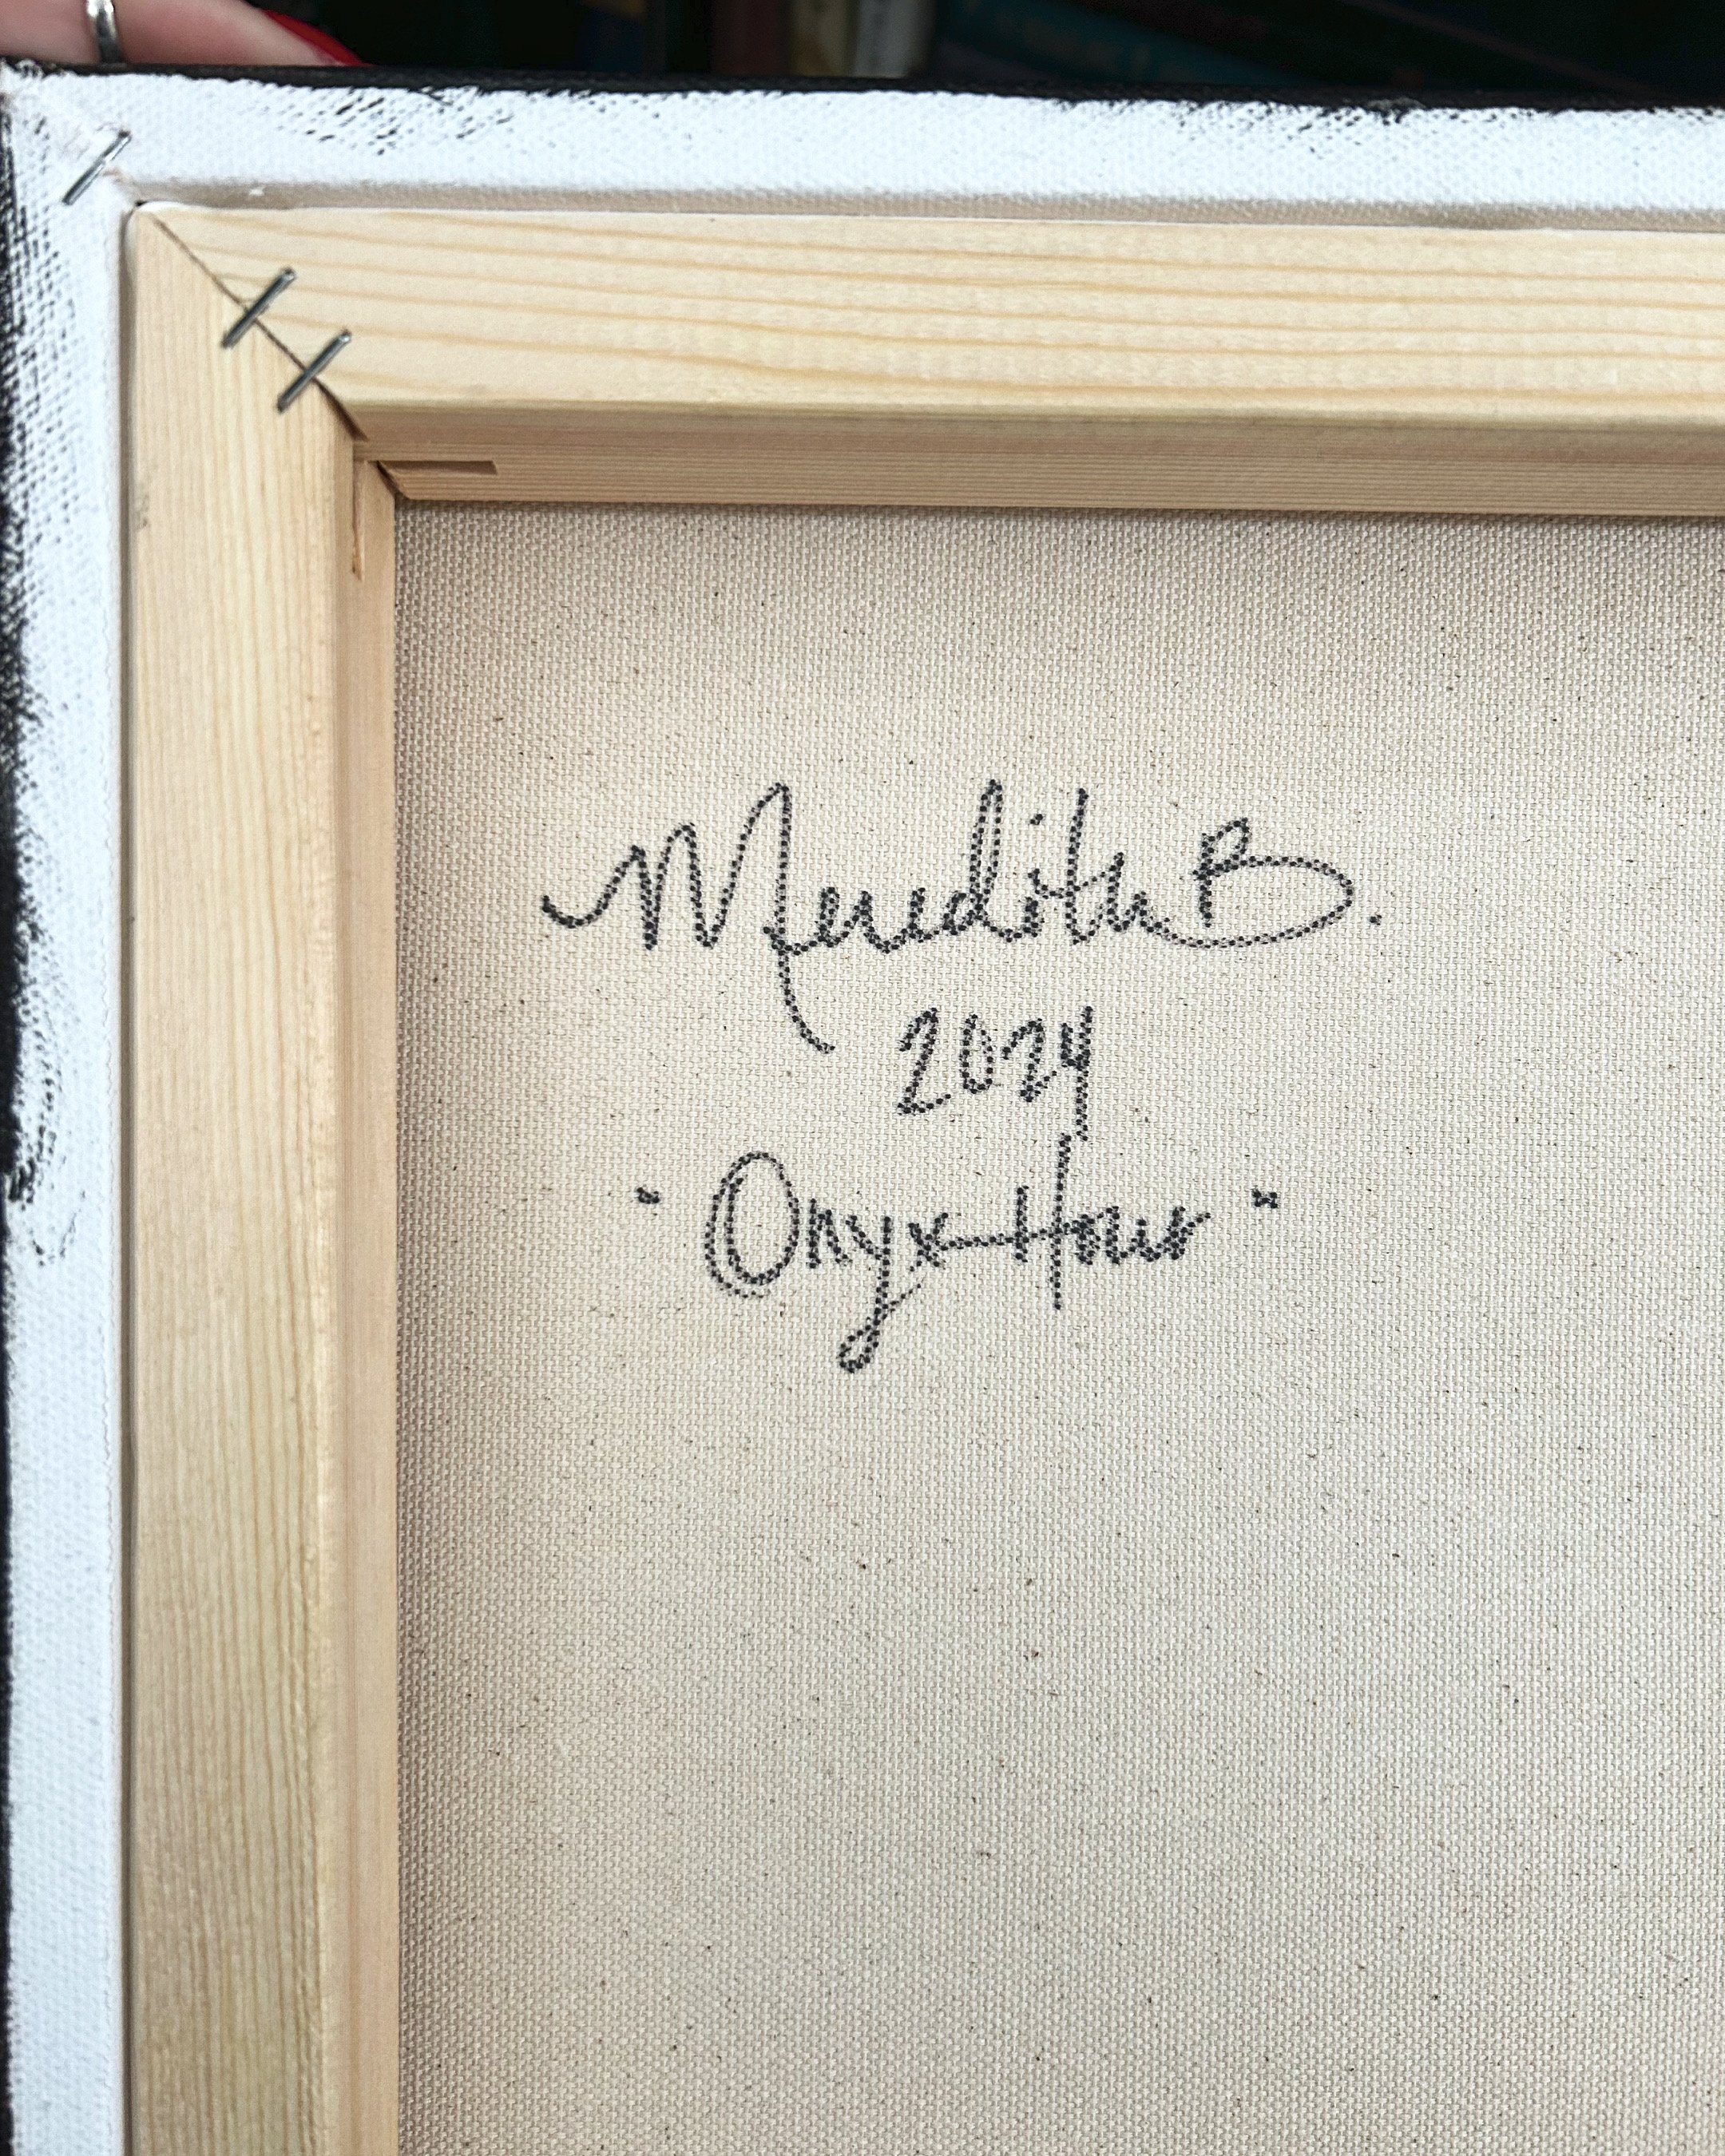 Meredith B.
2024
"Onyx Hour"